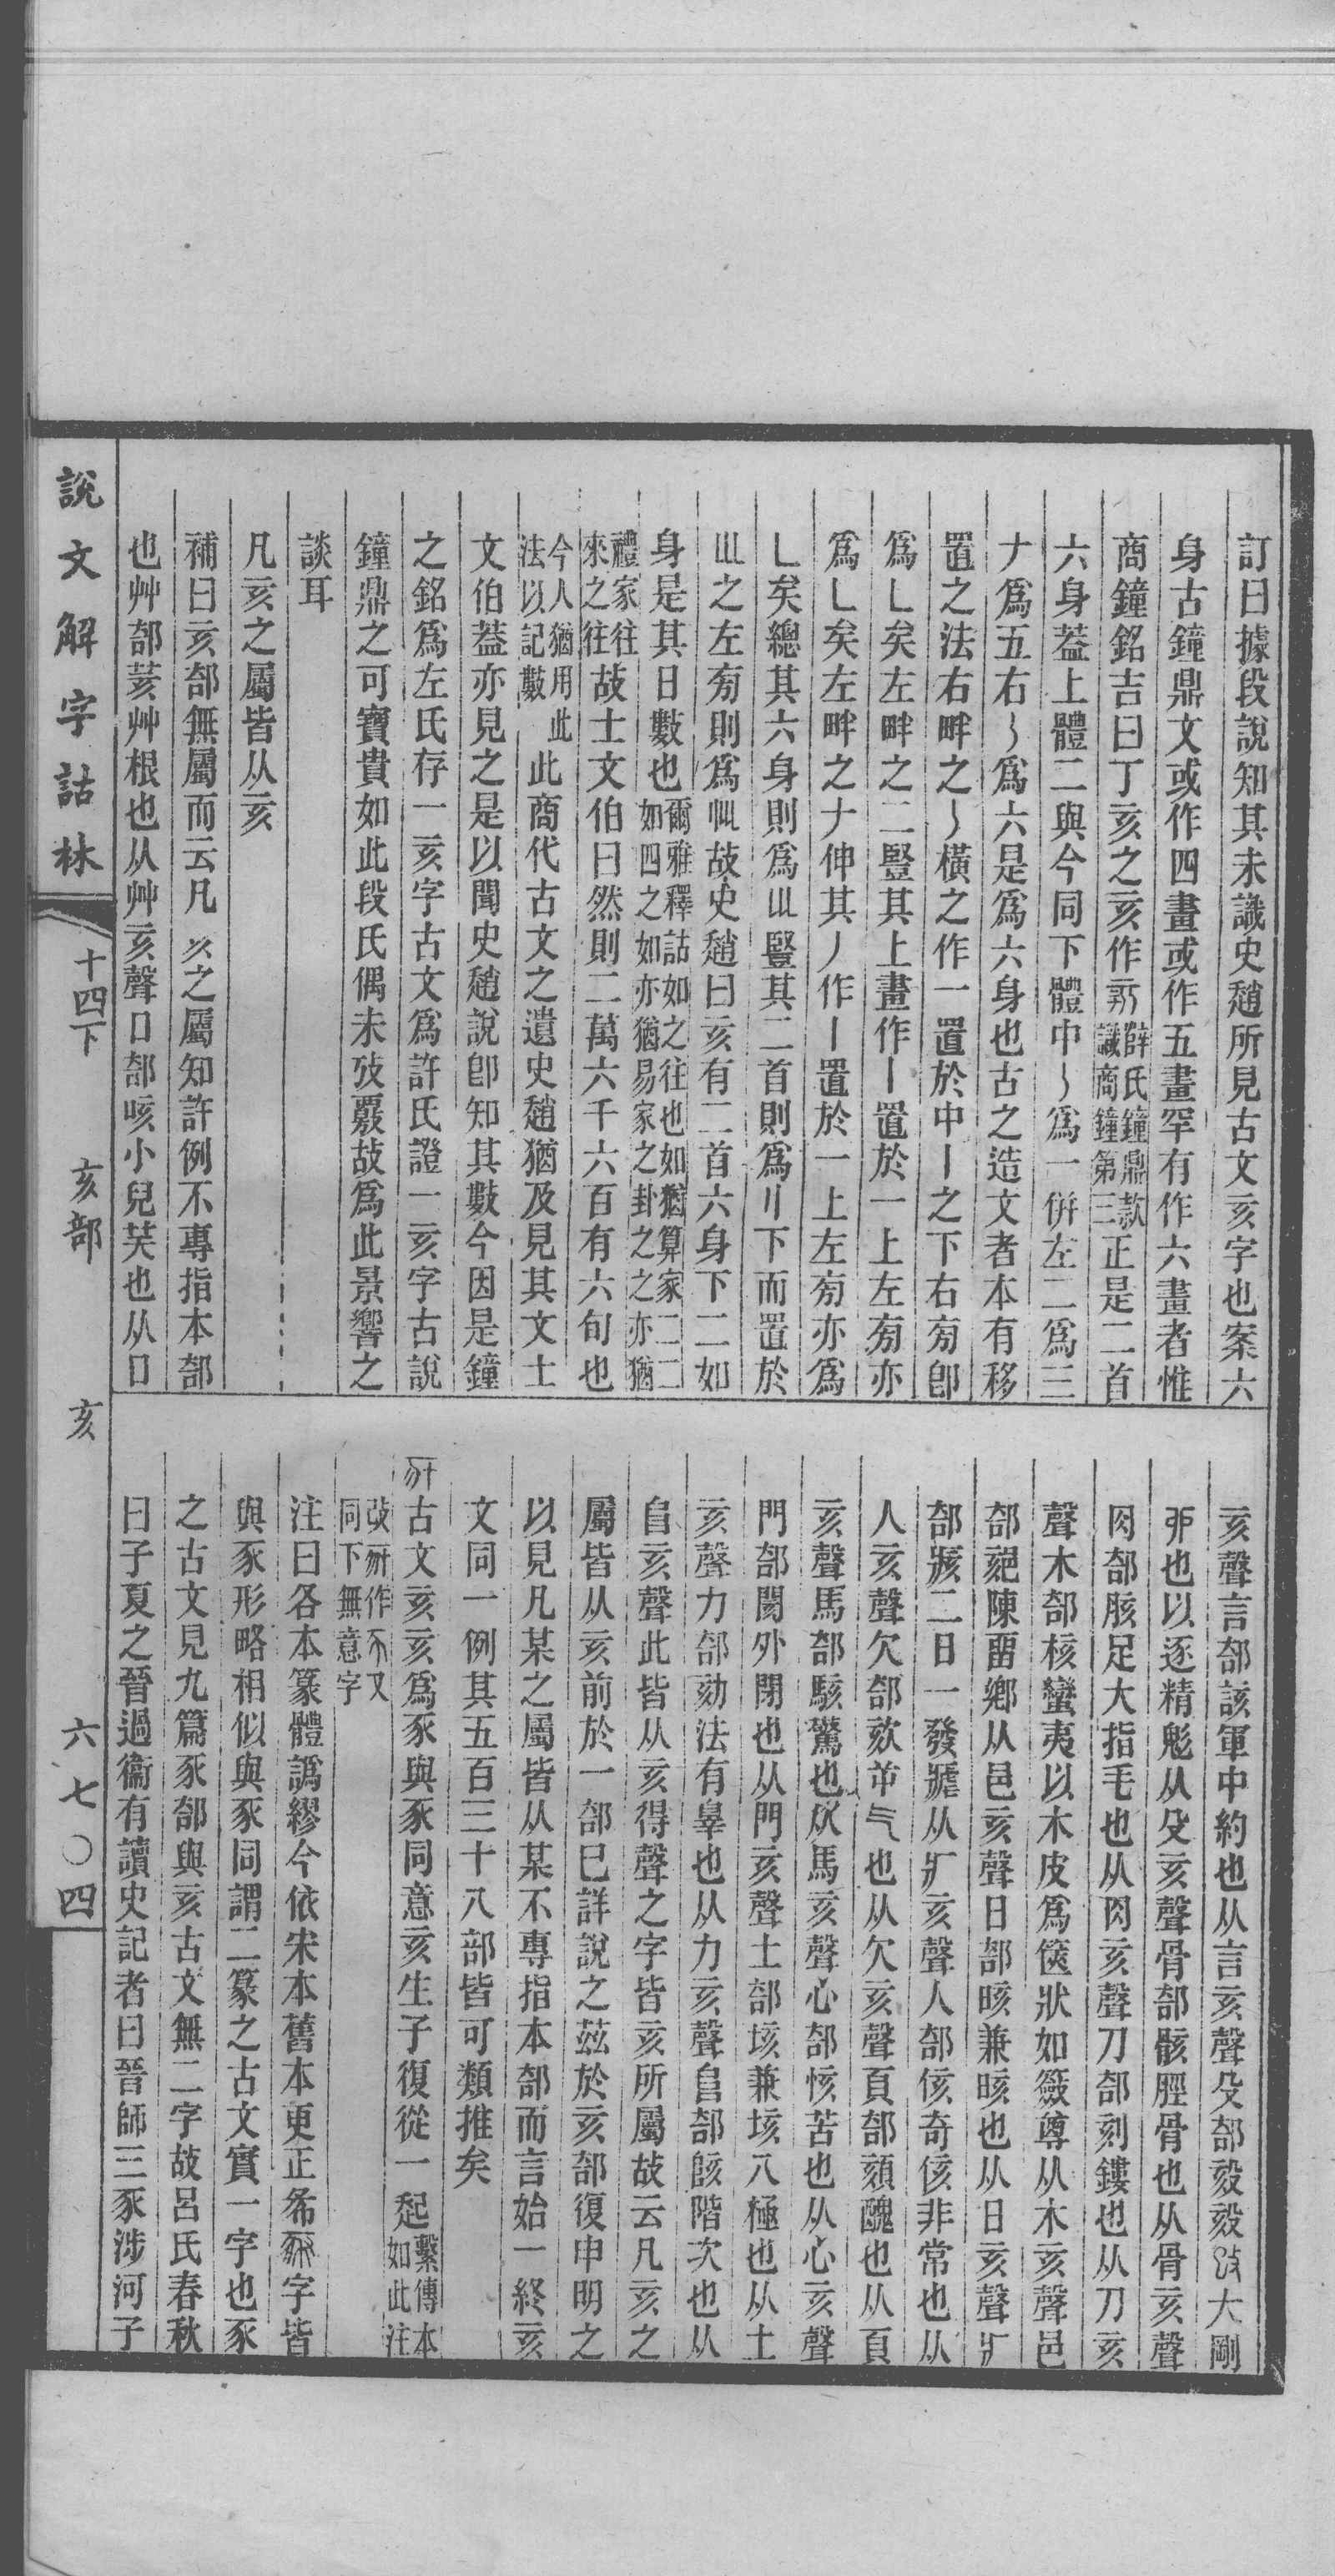 訂曰據段說知其未識史趙所見古文亥字也案六
身古鐘鼎文或作四畫或作五畫罕有作六畫者惟
商鐘銘吉曰丁亥之亥作薛氏鐘鼎款識商鐘第三正是二首
六身葢上體二與今同下體中㇀爲一併左二爲三
𠂇爲五右㇀爲六是爲六身也古之造文者本有移
置之法右畔之㇀橫之作一置於中丨之下右㫄卽
爲乚矣左畔之二豎其上畫作丨置於一上左㫄亦
爲乚矣左畔之𠂇伸其丿作丨置於一上左㫄亦爲
乚矣總其六身則爲豎其二首則爲〢下而置於
之左㫄則爲故史趙曰亥有二首六身下二如
身是其日數也爾雅釋詁如之往也如猶算家二二如四之如亦猶易家之卦之之亦猶
禮家往來之往故士文伯曰然則二萬六千六百有六旬也
今人猶用此法以記數此商代古文之遺史趙猶及見其文士
文伯葢亦見之是以聞史趙說卽知其數今因是鐘
之銘爲左氏存一亥字古文爲許氏證一亥字古說
鐘鼎之可寶貴如此段氏偶未攷覈故爲此景響之
談耳
凡亥之屬皆从亥
補曰亥部無屬而云凡之屬知許例不專指本部
也艸部荄艸根也从艸亥聲口部咳小兒笑也从口
亥聲言部該軍中約也从言亥聲殳部毅毅大剛
卯也以逐精鬽从殳亥聲骨部骸脛骨也从骨亥聲
肉部胲足大指毛也从肉亥聲刀部刻鏤也从刀亥
聲木部核蠻夷以木皮爲篋狀如籢尊从木亥聲邑
部郂陳畱鄉从邑亥聲日部晐兼晐也从日亥聲疒
部痎二日一發瘧从疒亥聲人部侅奇侅非常也从
人亥聲欠部欬屰气也从欠亥聲頁部頦醜也从頁
亥聲馬部駭驚也从馬亥聲心部㤥苦也从心亥聲
門部閡外閉也从門亥聲土部垓兼垓八極也从土
亥聲力部劾法有辠也从力亥聲𨸏部陔階次也从
𨸏亥聲此皆从亥得聲之字皆亥所屬故云凡亥之
屬皆从亥前於一部已詳說之茲於亥部復申明之
以見凡某之屬皆从某不專指本部而言始一終亥
文同一例其五百三十八部皆可類推矣
古文亥亥爲豕與豕同意亥生子復從一起繫傳本如此注
攷作又同下無意字
注曰各本篆體譌繆今依宋本舊本更正㣇字皆
與豕形略相似與豕同謂二篆之古文實一字也豕
之古文見九篇豕部與亥古文無二字故呂氏春秋
曰子夏之晉過衞有讀史記者曰晉師三豕涉河子
說文解字詁林 十四下 亥部 亥 六七〇四